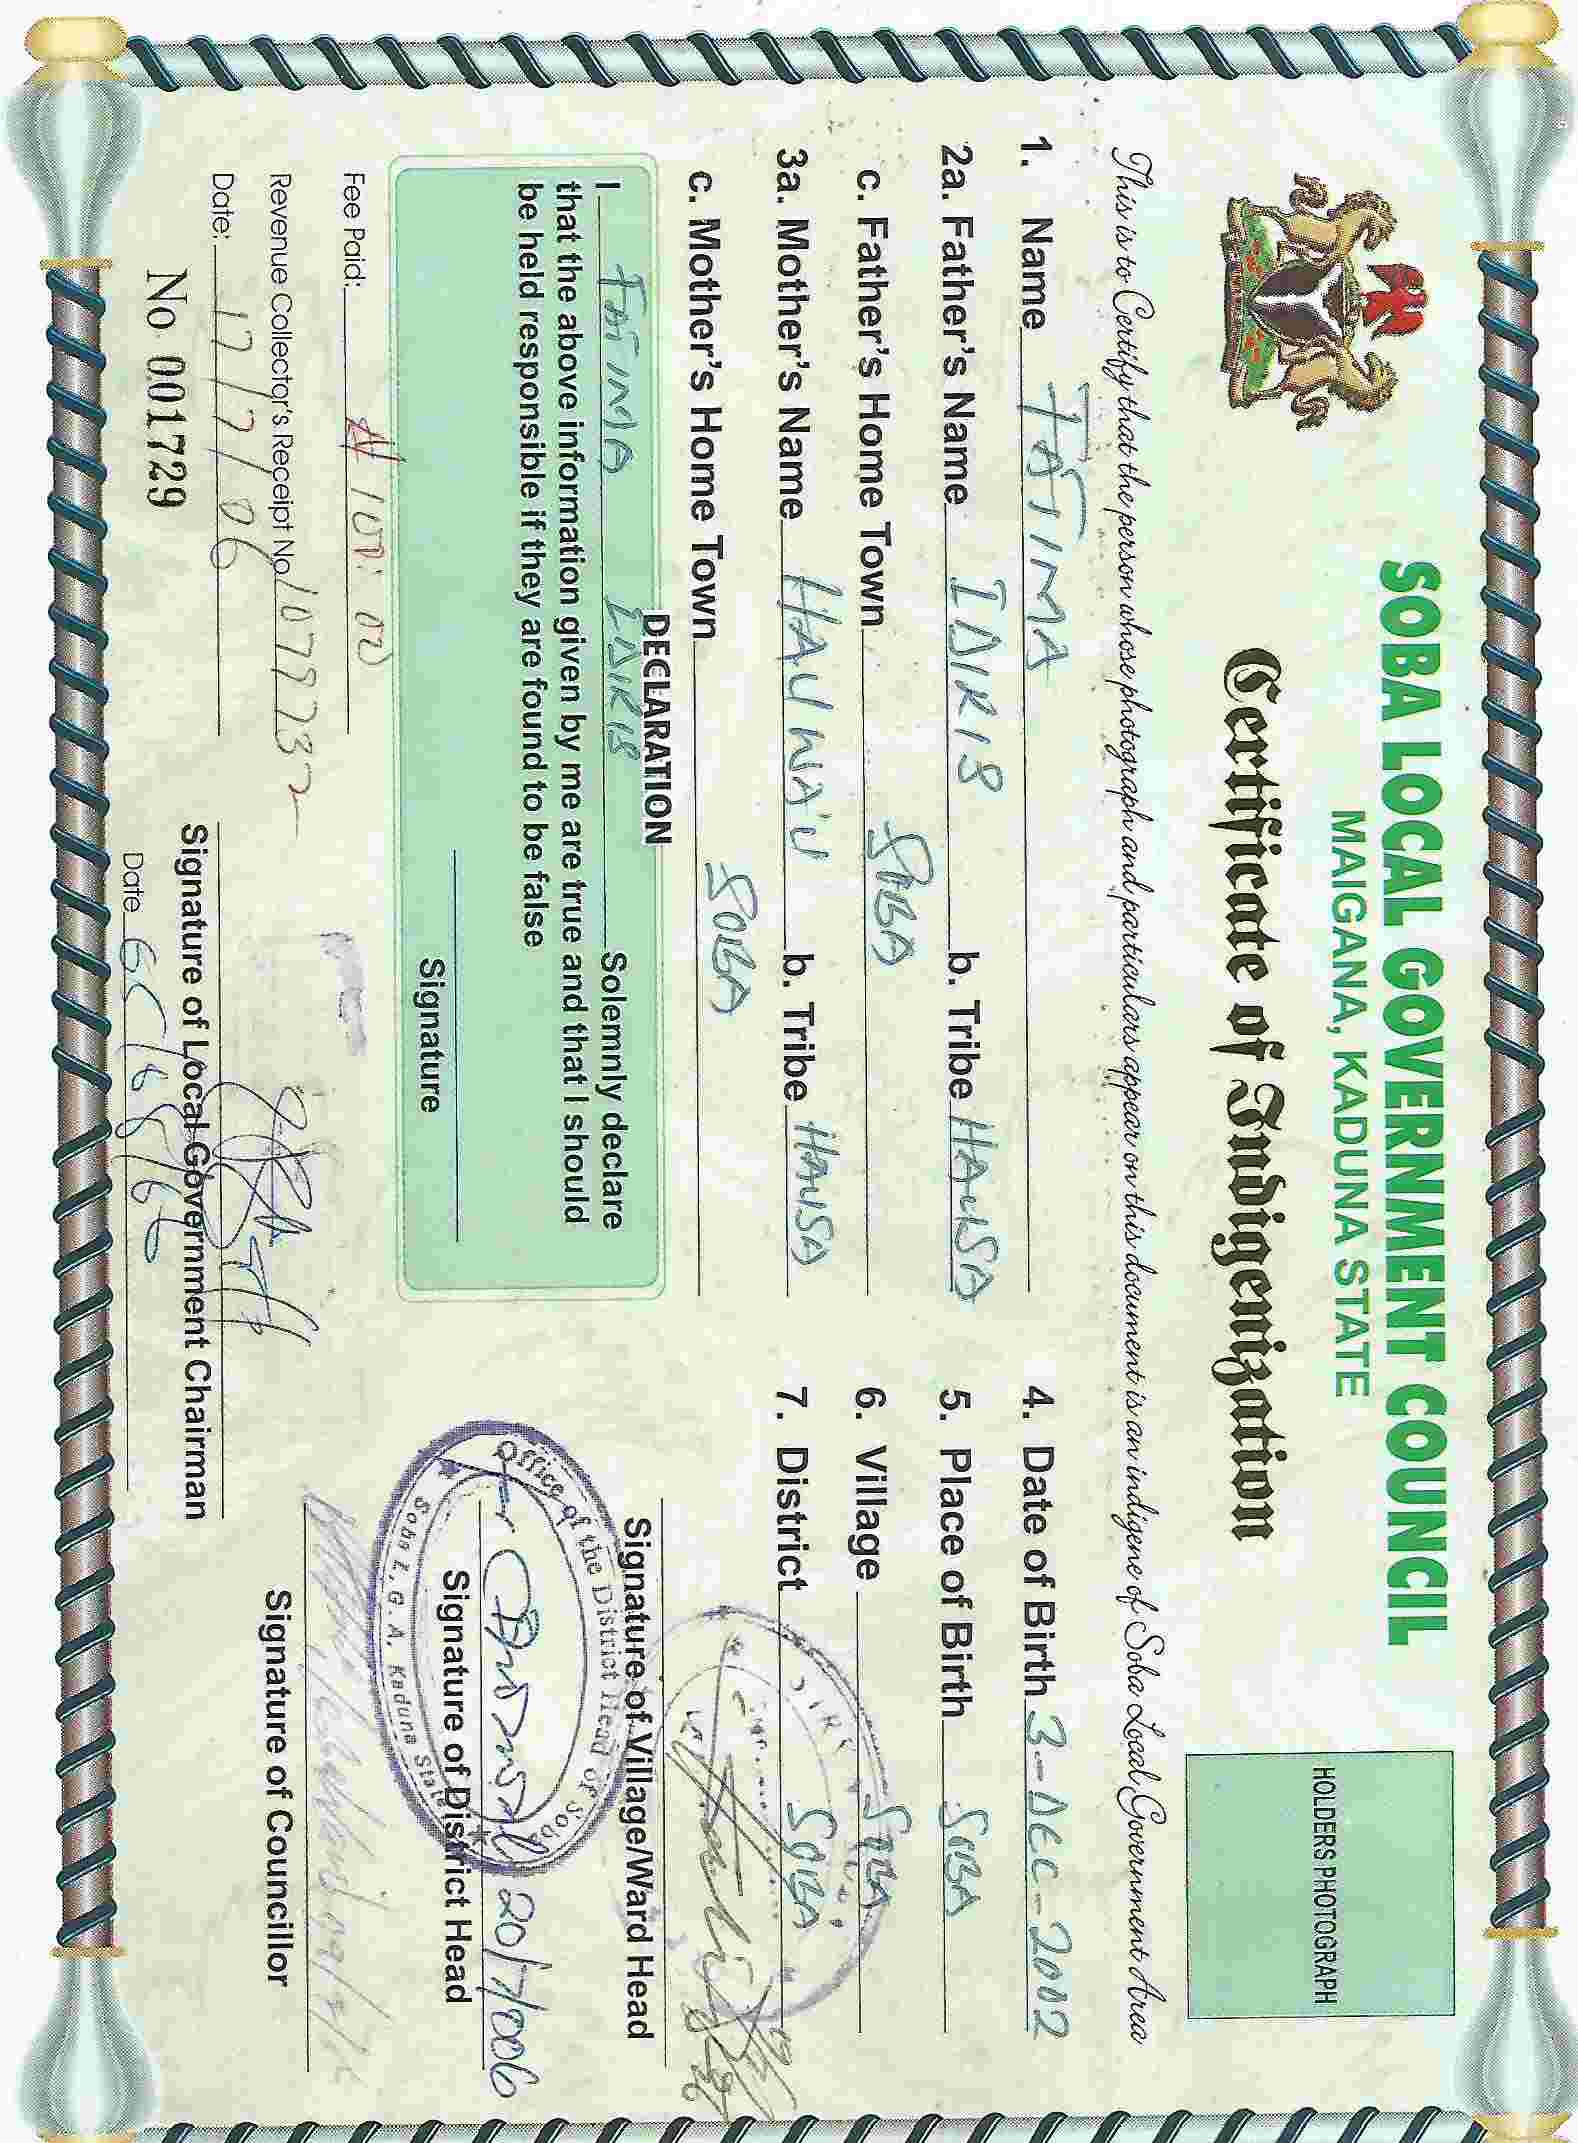 SOBA LOCAL GOVERNMENT COUNCIL
MAIGANA, KADUNA STATE
Certificate of Indigenization
HOLDERS PHOTOGRAPH
This is to Certify that the person whose photograph and particulars appear on this document is an indigene of Soba Local Government Area
1. Name FATIMA
2a. Father's Name IDIRIS b. Tribe HAUSA
c. Father's Home Town SOBA
3a. Mother's Name HAUWA'U b. Tribe HAUSA
c. Mother's Home Town SOBA
4. Date of Birth 3-DEC-2002
5. Place of Birth SOBA
6. Village SOBA
7. District SOBA
DECLARATION
I FATIMA IDIRIS Solemnly declare
that the above information given by me are true and that I should
be held responsible if they are found to be false
Signature
Signature of Village/Ward Head
Office of the District Head of Soba
Soba L.G.A. Kaduna State
20/7/006
Signature of District Head
Signature of Councillor
Fee Paid: ₦100:00
Revenue Collector's Receipt No
Date: 17/7/06
No 001729
Signature of Local Government Chairman
Date